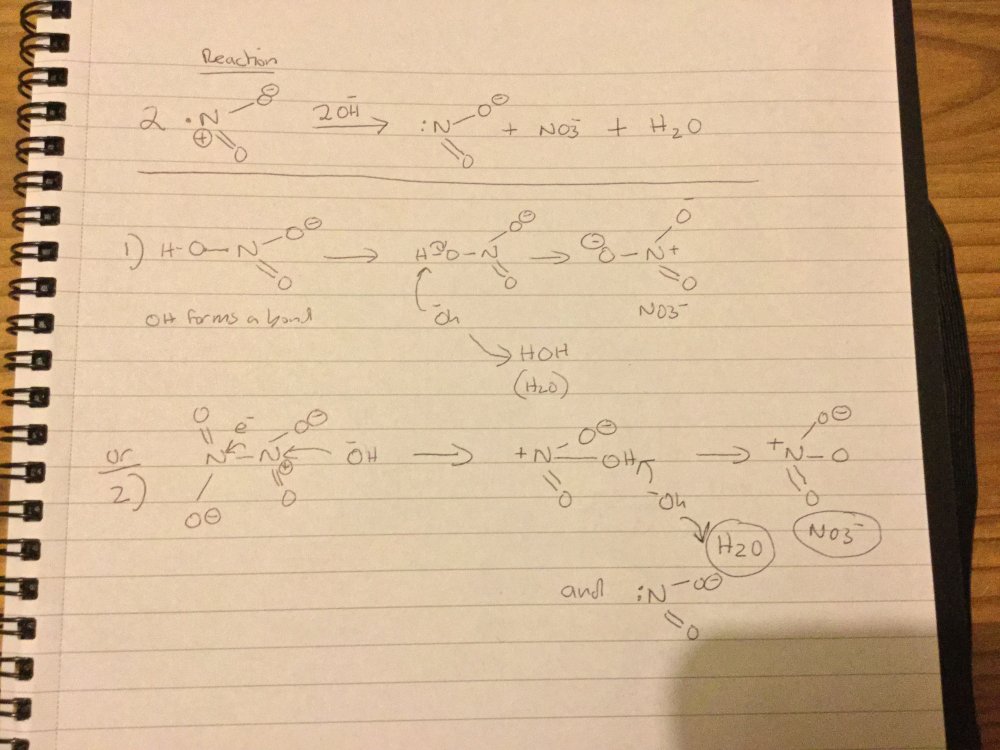 Reaction
2 ·N⊕ O⊖ O 2OH⁻ → :N O⊖ O + NO3⁻ + H2O
1) H-O-N O⊖ O → H-O-N O⊖ O → ⊖O-N+ O⁻ O
OH forms a bond ⁻Oh NO3⁻
HOH
(H2O)
or
2) O N O⊖ e⁻ N⊕ O⊖ O ⁻OH → +N O⊖ OH O → +N O⊖ O O
⁻Oh
H2O NO3⁻
and :N O⊖ O